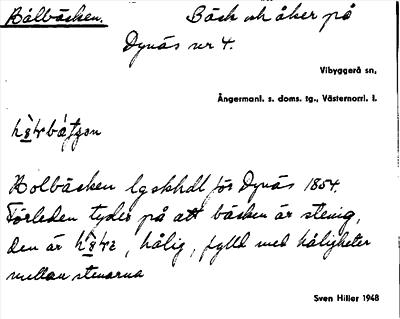 Bålbäcken. Bäck och åker på
Dynäs nr 4.
Vibyggerå sn,
Ångermanl. s. doms. tg., Västernorrl. l.
Bolbäcken lgskhdl för Dynäs 1854.
Förleden tyder på att bäcken är stenig,
den är, hålig, fylld med håligheter
mellan stenarna
Sven Hiller 1948